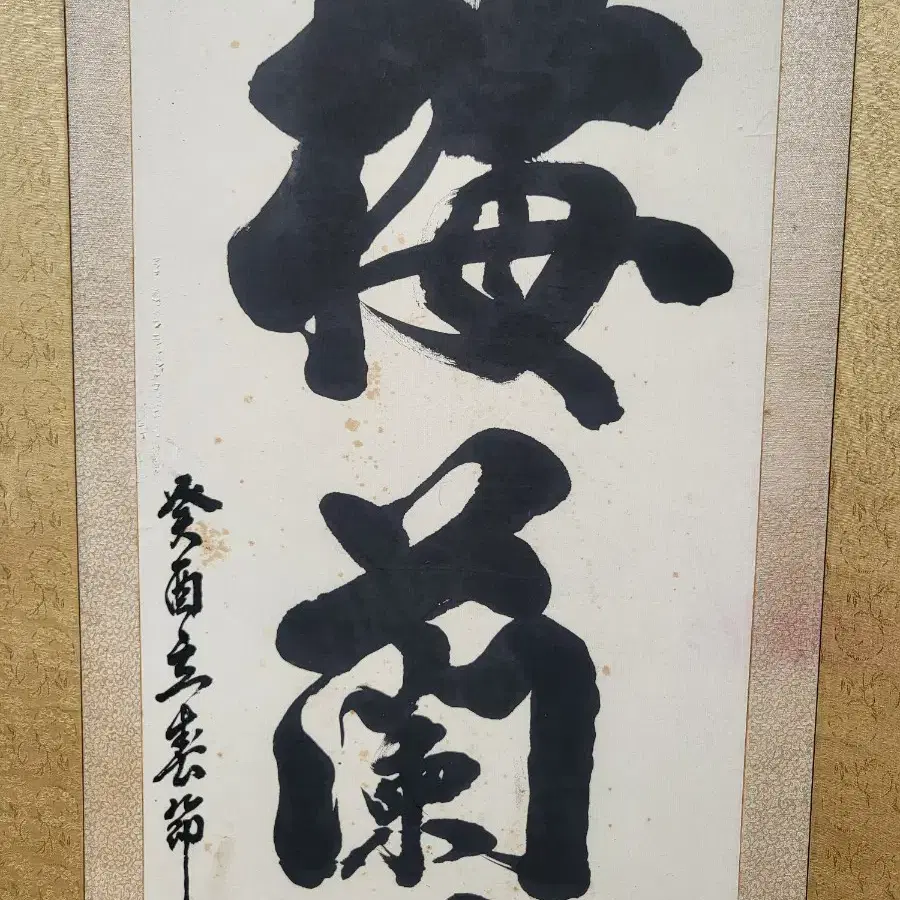 梅蘭
癸酉立春節